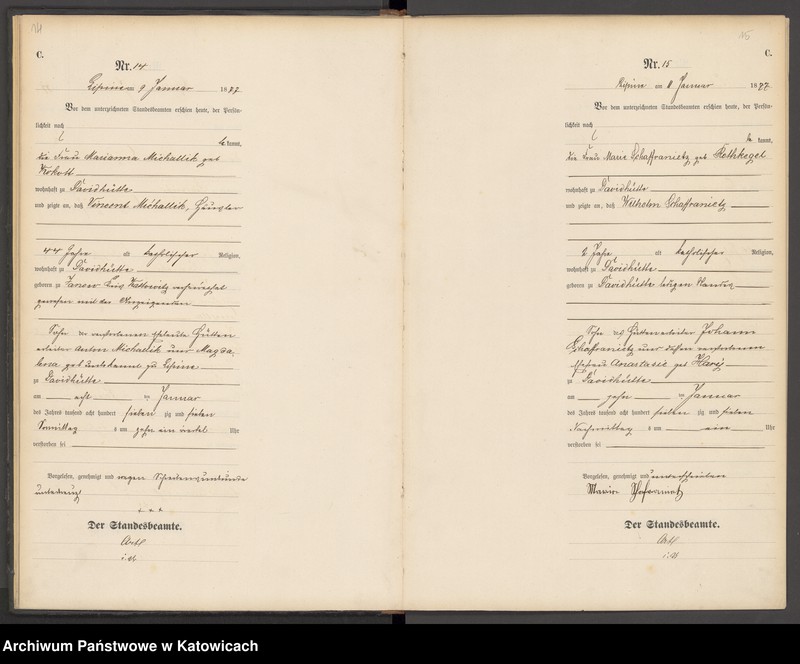 14
C.
Nr. 14
Lipine am 9 Januar 1877
Vor dem unterzeichneten Standesbeamten erschien heute, der Persön-
lichkeit nach
be kannt,
die Frau Marianna Michallik geb
Kokott
wohnhaft zu Davidhütte
und zeigte an, daß Vincent Michallik, Häusler
44 Jahre alt katholischer Religion,
wohnhaft zu Davidhütte
geboren zu Janow Kreis Kattowitz verheirathet
gewesen mit der Anzeigenden
Sohn der verstorbenen Eheleute Hütten
arbeiter Anton Michallik und Magda-
lena geb unbekannt zu Lipine
zu Davidhütte
am acht ten Januar
des Jahres tausend acht hundert sieben zig und sieben
Vormittag s um zehn ein viertel Uhr
verstorben sei
Vorgelesen, genehmigt und wegen Schreibensunkunde
unterkreuzt
+ + +
Der Standesbeamte.
i.V.
15
C.
Nr. 15
Lipine am 11 Januar 1877
Vor dem unterzeichneten Standesbeamten erschien heute, der Persön-
lichkeit nach
be kannt,
die Frau Marie Schaffranietz geb Rethkegel
wohnhaft zu Davidhütte
und zeigte an, daß Wilhelm Schaffranietz
2 Jahre alt katholischer Religion,
wohnhaft zu Davidhütte
geboren zu Davidhütte ledigen Standes
Sohn des Hüttenarbeiter Johann
Schaffranietz und dessen verstorbenen
Ehefrau Anastasie geb
zu Davidhütte
am zehn ten Januar
des Jahres tausend acht hundert sieben zig und sieben
Nachmittag s um ein Uhr
verstorben sei
Vorgelesen, genehmigt und unterschrieben
Marie
Der Standesbeamte.
i.V.
Archiwum Państwowe w Katowicach